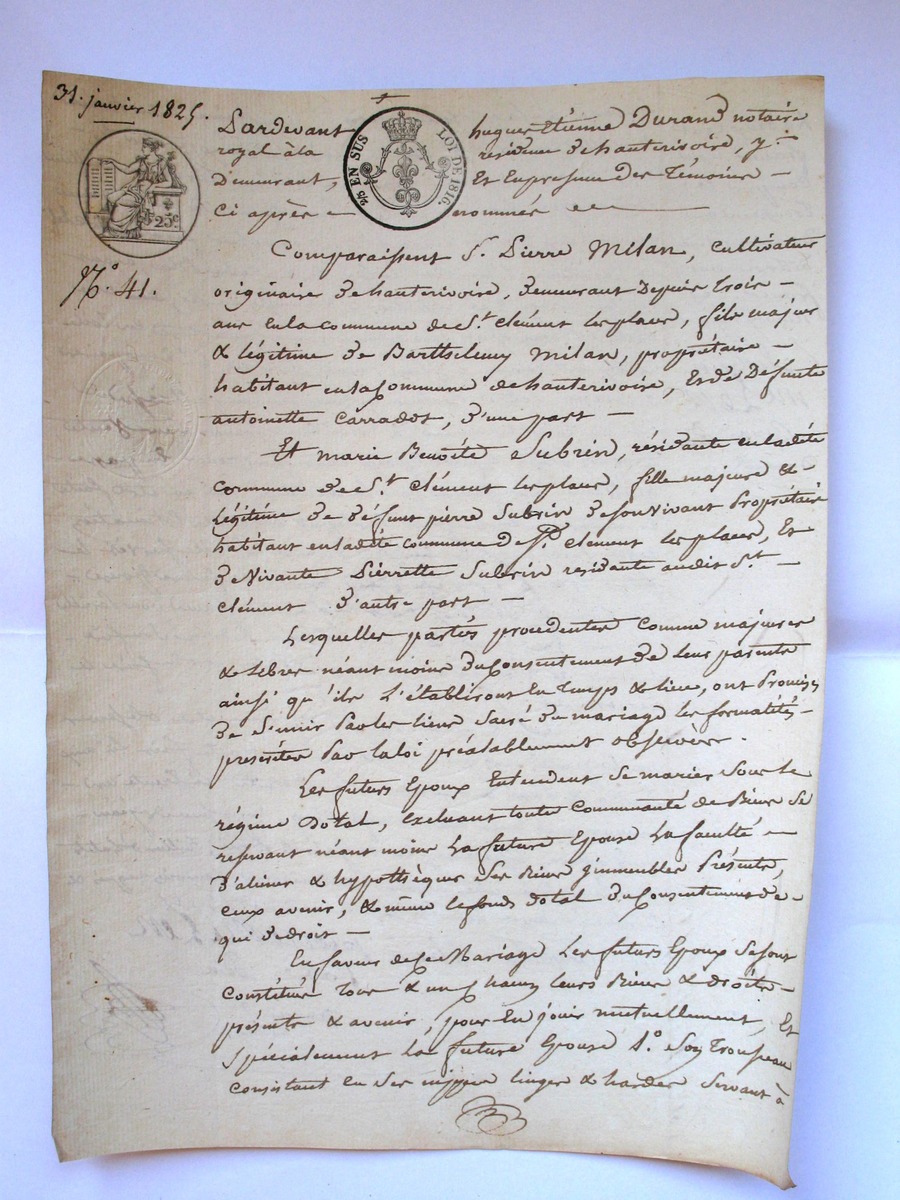 31. janvier 1825.
Pardevant hugues Etienne Durand notaire
royal à la résidence de hauterivoire, y
Demeurant, Et En présence des Témoins
Ci après nommés
2/5 EN SUS LOI DE 1816.
25c
N.o 41.
Comparaissent S. Pierre Milan, cultivateur
originaire de hauterivoire, demeurant Depuis trois
ans en la commune de S.t Clément les places, fils majeur
& légitime de Barthelemy Milan, propriétaire
habitant en la Commune de hauterivoire, Et de Défunte
antoinette Carradot, d'une part
Et marie Benoite Subrin, résidante en ladite
commune de S.t Clément les places, fille majeure et
Légitime de défunt pierre Subrin de son Vivant Propriétaire
habitant en ladite commune de S.t Clément les places, Et
de Vivante Pierrette Subrin residante audit S.t
Clément d'autre part
Lesquelles parties procedentes comme majeures
& libres néant moins du Consentement de leurs parents
ainsi qu'ils L'établiront en Temps & lieu, ont Promis
de S'unir Par les liens Sacré du mariage les formalités
prescrites Par la loi préalablement observées.
Les futurs Epoux Entendent Se marier Sous le
régime Dotal, Excluant toute Communauté de Biens Se
reservant néant moins La future Epouse La faculté
d'aliéner & hypothèquer Ses Biens immeubles Présents,
ceux avenir, & même le fonds dotal du Consentement de
qui de droit
En faveur de ce Mariage Les futurs Epoux Se sont
Constitués Tous & un Chacun leurs Biens & droits
présents & avenir, pour En jouir mutuellement, Et
Spécialement la future Epouse 1.o Son Trousseau
Consistant en Ses nippes linges & hardes Servant à